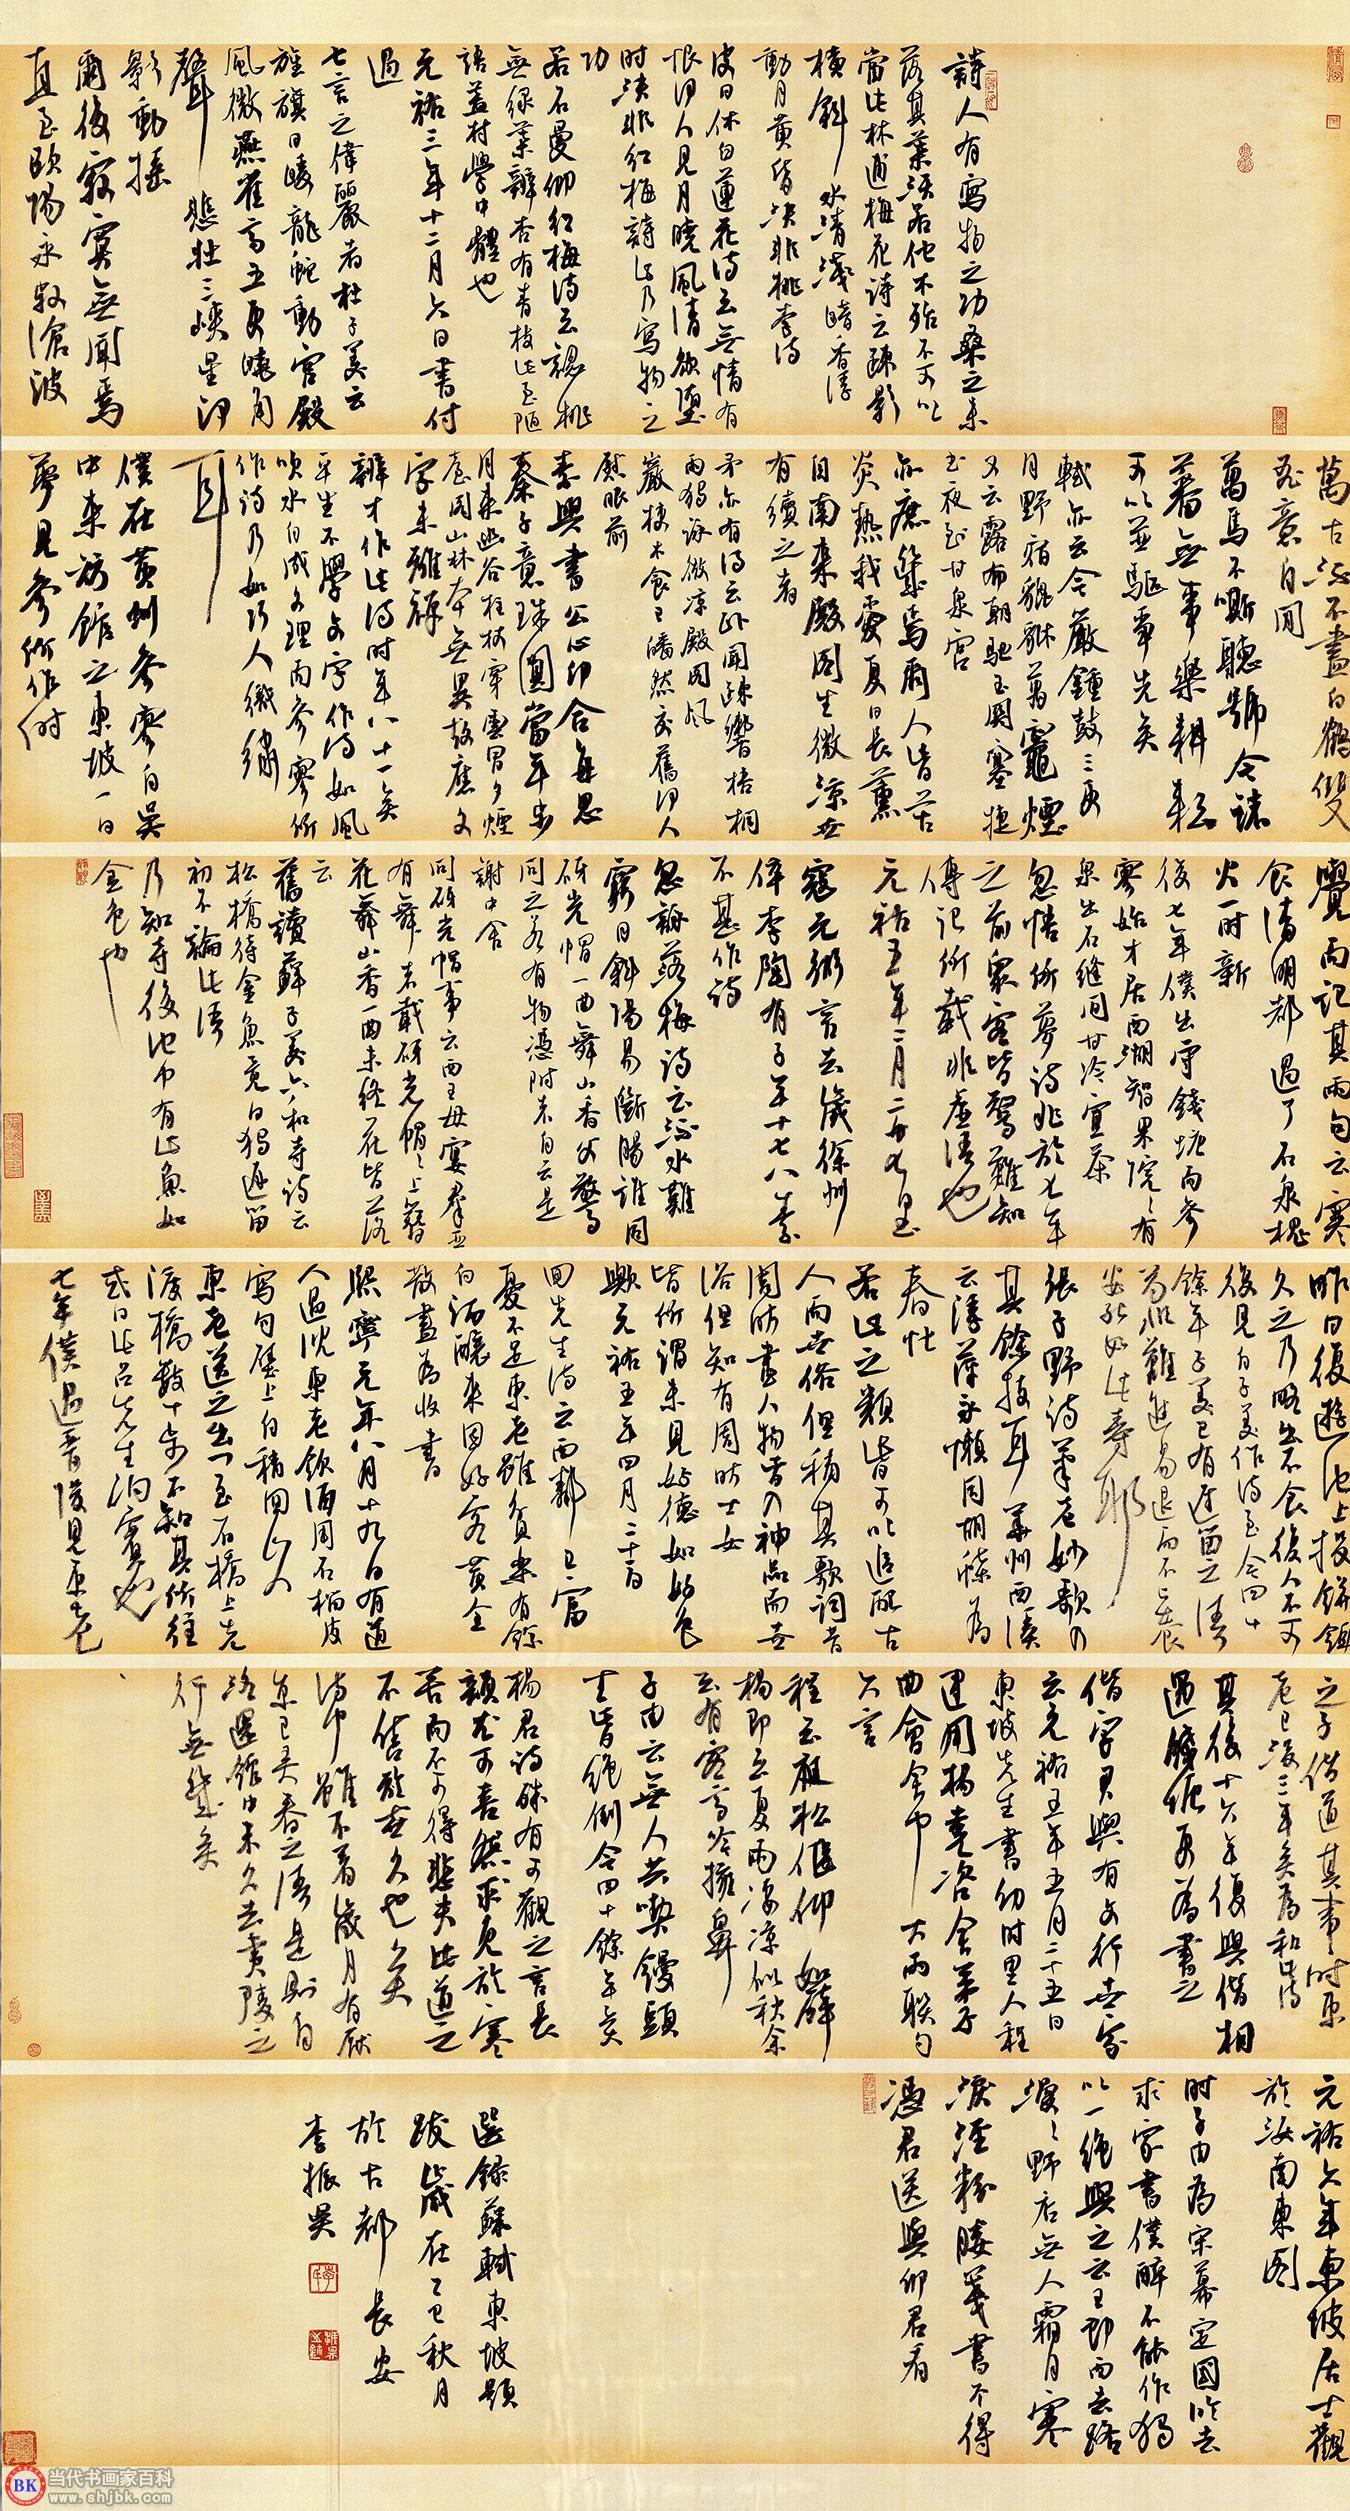 詩人有寫物之功桑之未
落其葉沃若他木殆不可以
當此林逋梅花詩云疎影
橫斜水清淺暗香浮
動月黃昏決非桃李詩
皮日休白蓮花詩云無情有
恨何人見月曉風清欲墮
時決非紅梅詩此乃寫物之
功
若石曼卿紅梅詩云認桃
無綠葉辨杏有青枝此至陋
語蓋村學中體也
元祐三年十二月六日書付
過
七言之偉麗者杜子美云
旌旗日暖龍蛇動宮殿
風微燕雀高五更曉角
聲悲壯三峽星河
影動搖
爾後寂寞無聞焉
直至歐陽永叔滄波
萬古流不盡白鶴雙
飛意自閒
萬馬不嘶聽號令諸
蕃無事樂耕耘
可以並驅爭先矣
軾亦云令嚴鍾鼓三更
月野宿貔貅萬竈煙
又云露布朝馳玉關塞捷
書夜到甘泉宮
亦庶幾焉爾人皆苦
炎熱我愛夏日長薰
風自南來殿閣生微涼世
有續之者
予亦有詩云臥聞疎響梧桐
雨獨詠微涼殿閣風
巖棲木食已皤然交舊何人
慰眼前
素與晝公心印合每思
秦子意珠圓當年步
月來幽谷柱杖穿雲冒夕煙
臺閣山林本無異故應文
字未離禪
辯才作此詩時年八十一矣
平生不學文字作詩如風
吹水自成文理而參寥所
作詩乃如巧人織繡
耳
僕在黃州參寥自吳
中來訪館之東坡一日
夢見參寥所作詩
覺而記其兩句云寒
食清明都過了石泉槐
火一時新
後七年僕出守錢塘而參
寥始卜居西湖智果院院有
泉出石縫間甘冷宜茶
忽悟所夢詩兆於七年
之前眾客皆驚歎知
傳記所載非虛語也
元祐五年二月二十七日
寇元弼言去歲徐州
倅李陶有子年十七八素
不甚作詩
忽詠落梅詩云流水難
窮目斜陽易斷腸誰同
砑光帽一曲舞山香父驚
問之若有物憑附者自云是
謝中舍
問砑光帽事云西王母宴群臣
有舞者戴砑光帽帽上簪
花舞山香一曲未終花皆落
云
舊讀蘇子美六和寺詩云
松橋待金魚竟日獨遲留
初不諭此語
乃知寺後池中有此魚如
金色也
昨日復遊池上投餅餌
久之乃略出不食復入不可
復見自子美作詩至今四十
餘年子美已有遲留之語
苟非難進易退而不妄食
安能如此壽耶
張子野詩筆老妙歌乃
其餘技耳華州西溪
云浮萍
愁似鰥魚知夜永懶同胡蝶為
春忙
若此之類皆可以追配古
人而世俗但稱其歌詞昔
周昉畫人物皆入神品而世
俗但知有周昉士女
皆所謂未見好德如好色
歟元祐五年四月二十一日
回先生詩云西鄰已富
憂不足東老雖貧樂有餘
白酒釀來因好客黃金
散盡為收書
熙寧元年八月十九日有道
人過沈東老飲酒用石榴皮
寫句壁上自稱回山人
東老送之出門至石橋上先
渡橋數十步不知其所往
或曰此呂先生洞賓也
七年僕過晉陵見東老
之子偕道其事時東
老已沒三年矣為和此詩
其後十六年復與偕相
遇錢塘更為書之
偕字君與有文行世家
云元祐五年五月二十五日
東坡先生書幼時里人程
建用楊堯咨舍弟子由
會學舍中大雨聯句
六言
程云庭松偃仰如醉
楊即云夏雨淒涼似秋余
云有客高吟擁鼻
子由云無人共喫饅頭
坐皆絕倒今四十餘年矣
楊君詩殊有可觀之言長
韻尤可喜然求免於寒
苦而不可得悲夫此道之
不售於世久也久矣
行無幾矣
元祐六年東坡居士觀
於汝南東閣
時子由為宋幕定國將去
求家書僕醉不能作獨
以一絕與之云王郎西去路
漫漫野店無人霜月寒
淚溼粉牋書不得
憑君送與卯君看
選錄蘇軾東坡題
跋歲在乙巳秋月
於古都長安
李振吳
BK
当代书画家百科
www.shjbk.com